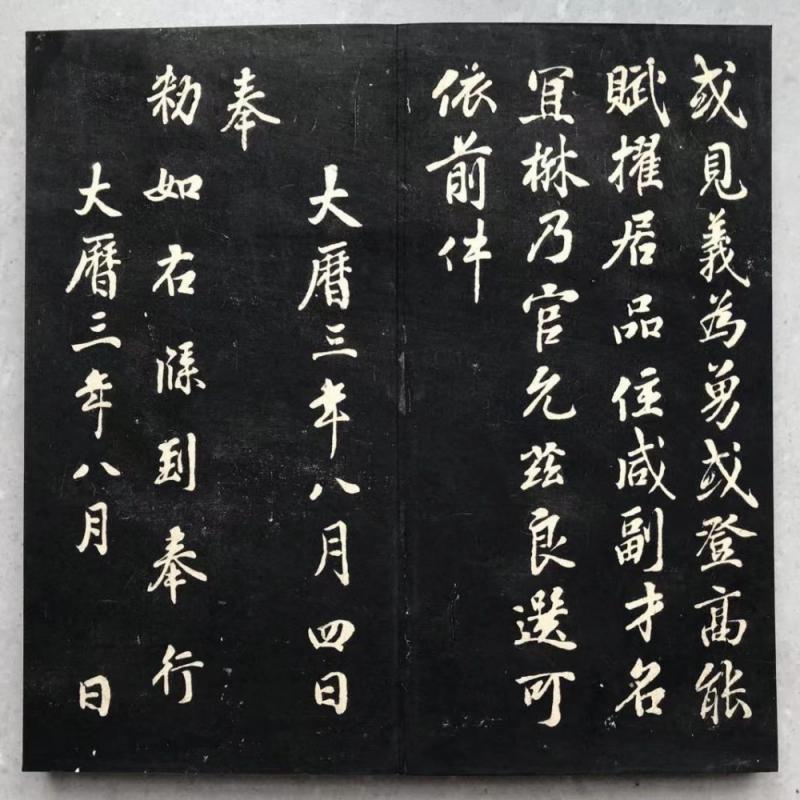 或見義為勇或登高能
賦擢居品位咸副才名
宜楙乃官允茲良選可
依前件
大曆三年八月四日
奉
勑如右牒到奉行
大曆三年八月 日